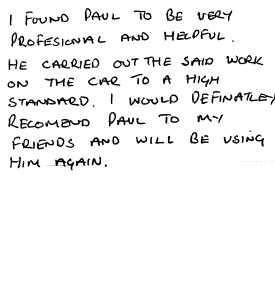 I FOUND PAUL TO BE VERY
PROFESIONAL AND HELPFUL.
HE CARRIED OUT THE SAID WORK
ON THE CAR TO A HIGH
STANDARD. I WOULD DEFINATLEY
RECOMEND PAUL TO MY
FRIENDS AND WILL BE USING
HIM AGAIN.